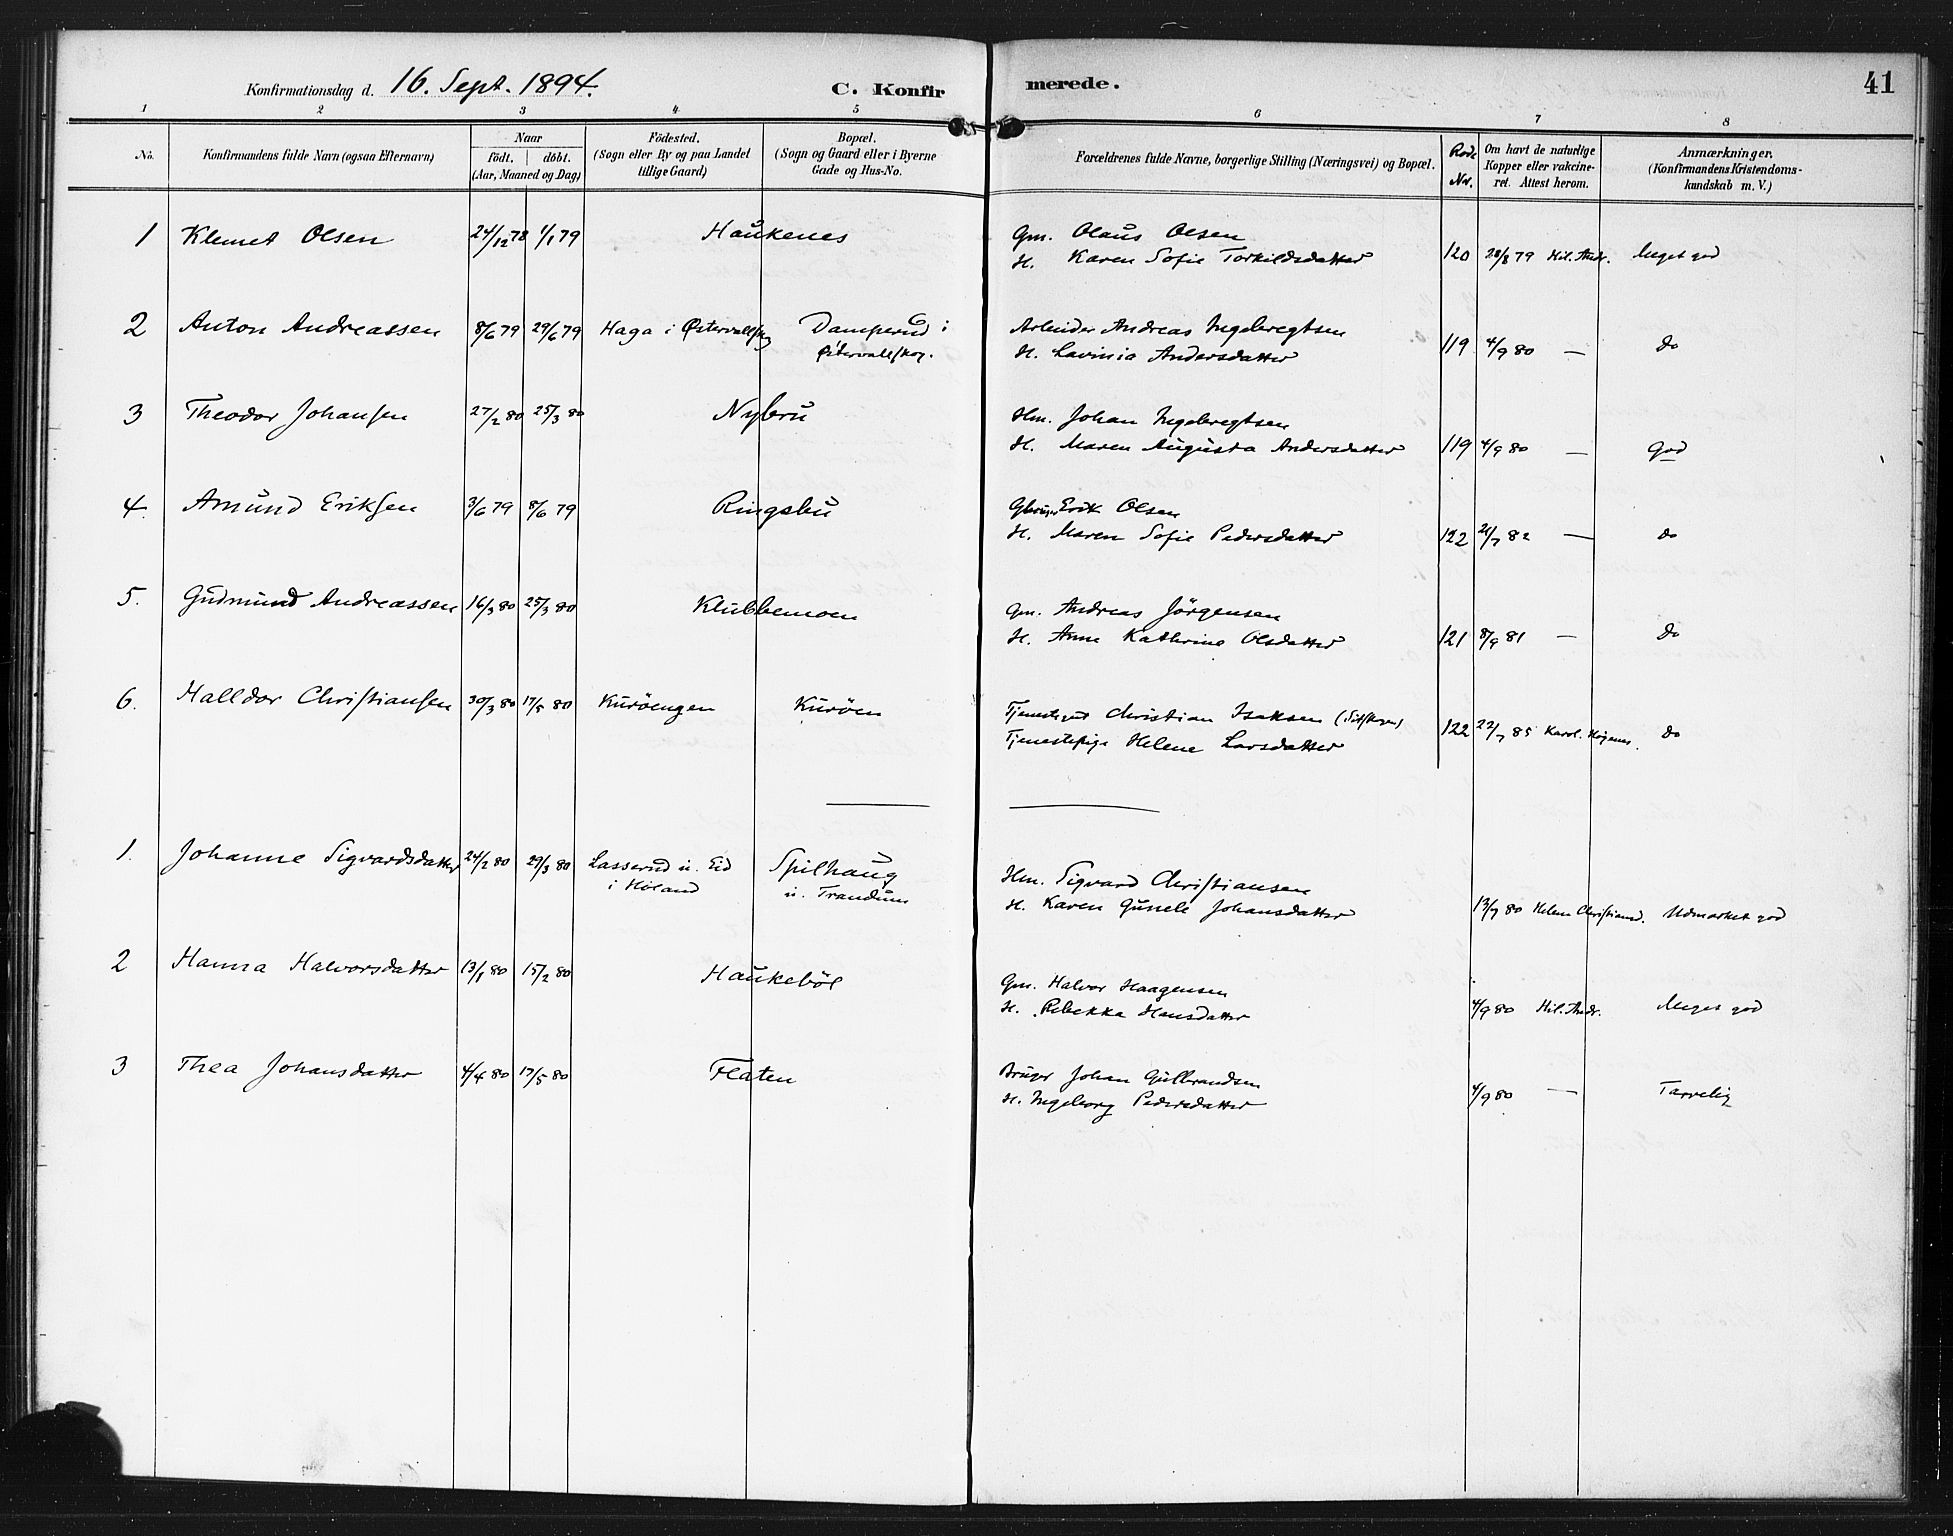 Konfirmationsdag d. 16. Sept. 1894. C. Konfir merede. 41
1 2 3 4 5 6 7 8
No. Konfirmandens fulde Navn (ogsaa Efternavn) Naar födt. | döbt. (Aar, Maaned og Dag) Födested. (Sogn eller By og paa Landet tillige Gaard) Bopæl. (Sogn og Gaard eller i Byerne Gade og Hus-No. Forældrenes fulde Navne, borgerlige Stilling (Næringsvei) og Bopæl. Rode Nr. Om havt de naturlige Kopper eller vakcine-ret. Attest herom. Anmærkninger. (Konfirmandens Kristendoms-kundskab m. V.)
1 Klemet Olsen 24/12 78 1/1 79 Haukenes Gm. Olaus Olsen
H. Karen Sofie Torkildsdatter 120 28/8 79 Hil. Andr. Meget god
2 Anton Andreassen 8/6 79 29/6 79 Haga i Østervallskog Damperud i Østervallskog. Arbeider Andreas Ingebregtsen
H. Lavinia Andersdatter 119 4/9 80 — do
3 Theodor Johansen 27/2 80 25/3 80 Nybru Hm. Johan Ingebregtsen
H. Maren Augusta Andersdatter 119 4/9 80 — God
4. Amund Eriksen 3/6 79 8/6 79 Ringsbu Gbruger Erik Olsen
H. Maren Sofie Pedersdatter 122 21/7 82 — do
5. Gudmund Andreassen 16/3 80 25/3 80 Klubbemoen Gm. Andreas Jörgensen
H. Anne Kathrine Olsdatter 121 8/9 81 — do
6. Halldor Christiansen 30/3 80 17/5 80 Kuröengen Kuröen Tjenestegut Christian Isaksen
Tjenestepige Helene Larsdatter 122 22/7 85 Karol. Högenes. do
1. Johanne Sigvardsdatter 24/2 80 29/3 80 Lasserud u. Eid i Höland Spilhaug u. Trandum Hm. Sigvard Christiansen
H. Karen Gunele Johansdatter 13/7 80 Helene Christiansd. Udmærket god
2 Hanna Halvorsdatter 13/1 80 15/2 80 Haukeböl Gm. Halvor Haagensen
H. Rebekka Hansdatter 4/9 80 Hil. Andr. Meget god
3 Thea Johansdatter 4/4 80 17/5 80 Flaten Bruger Johan Gulbrandsen
H. Ingeborg Pedersdatter 4/9 80 — Tarvelig